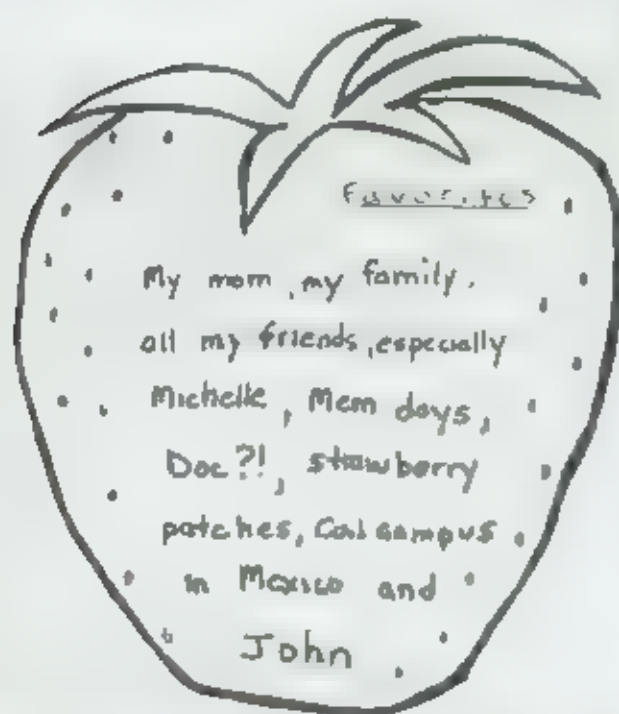 Favorites
My mom, my family,
all my friends, especially
Michelle, Mem days,
Doc?!, strawberry
patches, Calcampus
in Mexico and
John